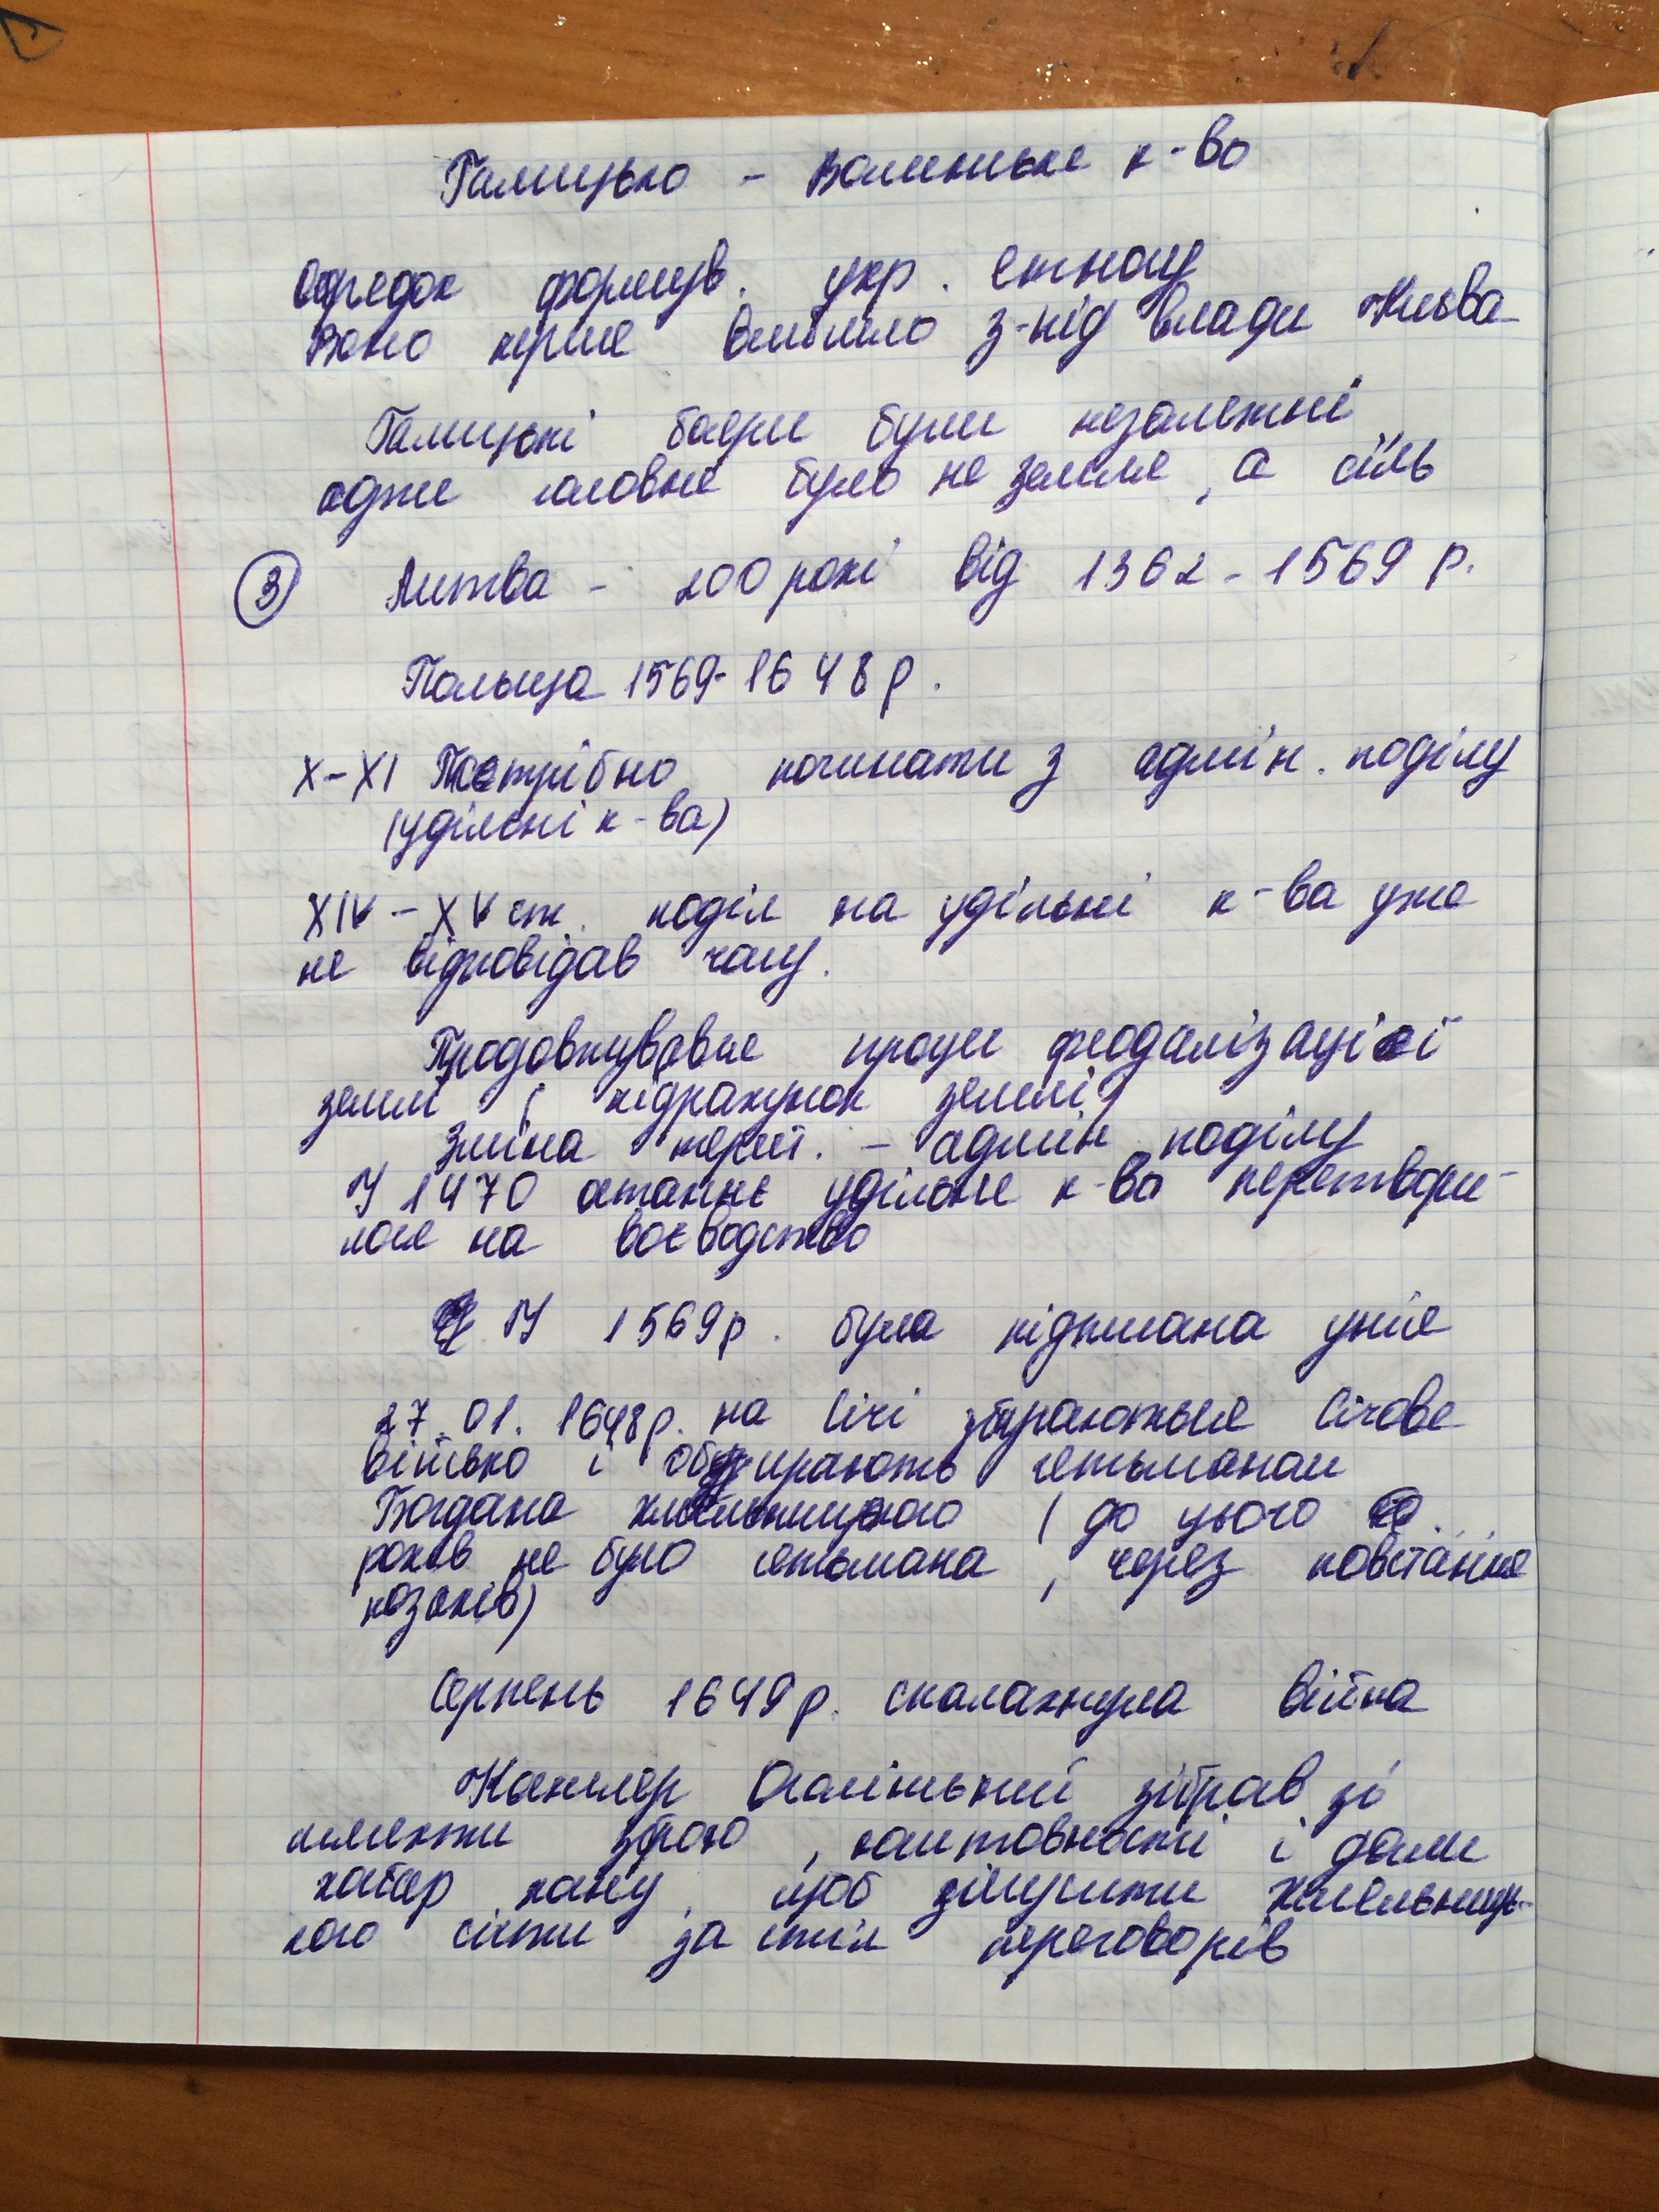 Галицько - Волинське к-во
Осередок формув. укр. етносу
Воно перше вийшло з-під влади Києва
Галицькі бояри були незалежні
адже головне було не земля, а сіль
③ Литва - 200 рокі від 1362 - 1569 р.
Польща 1569-1648 р.
X-XI Потрібно починати з адмін. поділу
(удільні к-ва)
XIV-XV ст. поділ на удільні к-ва уже
не відповідав часу.
Продовжувався процес феодалізації
землі ( підрахунок землі)
Зміна терит. - адмін. поділу
У 1470 останнє удільне к-во перетвори-
лося на воєводство
У 1569р. була підписана унія
27.01.1648р. на Січі збираються Січове
військо і обирають гетьманом
Богдана Хмельницького ( до цього
років не було гетьмана, через повстання
козаків)
Серпень 1649р. спалахнула війна
Канцлер Осолінський зібрав зі
шляхти зброю, коштовності і дали
хабар хану, щоб змусити Хмельниць-
кого сісти за стіл переговорів